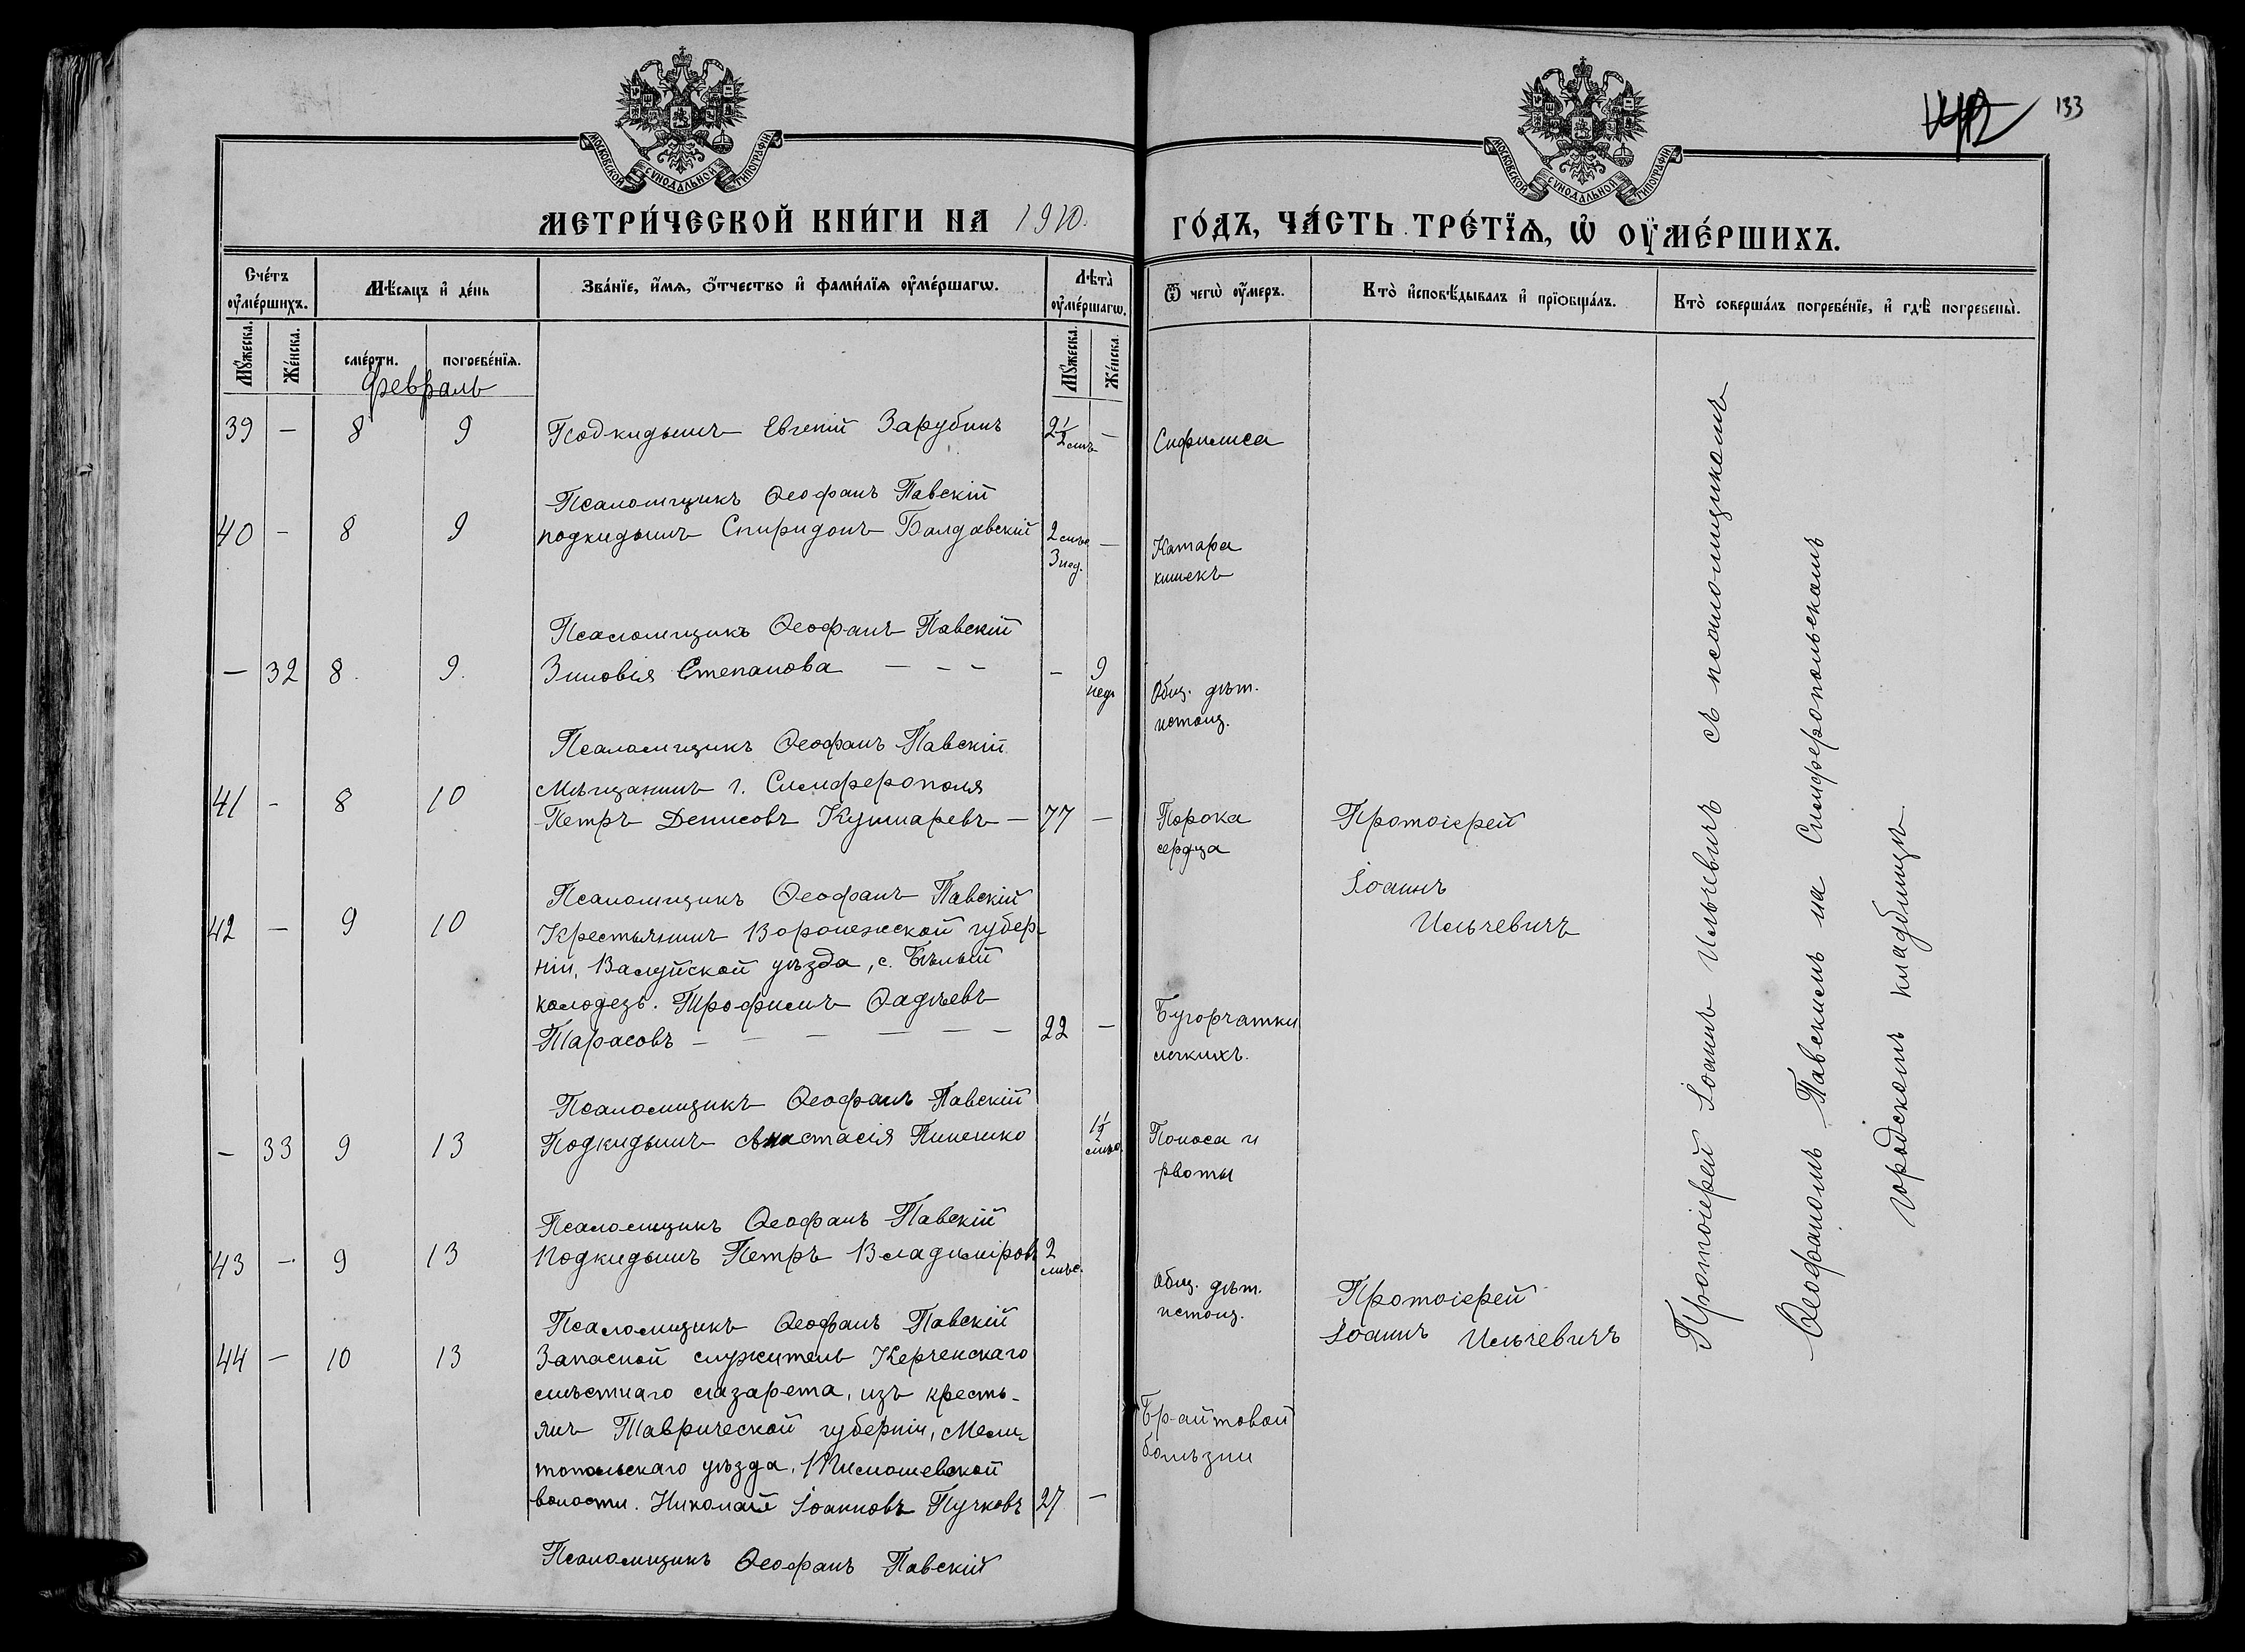 МОСКОВСКОЙ СѴНОДАЛЬНОЙ ТИПОГРАФІИ
МОСКОВСКОЙ СѴНОДАЛЬНОЙ ТИПОГРАФІИ
133
МЕТРИ́ЧЕСКОЙ КНИ́ГИ НА 1910.
ГО́ДЪ, ЧА́СТЬ ТРЕ́ТЇѦ, Ѡ҆ ОУ҆МЕ́РШИХЪ.
Сче́тъ оу҆ме́ршихъ.
Мѣ́сяцъ и҆ де́нь
Зва́нїе, и҆́мѧ, ѻ҆́тчество и҆ фами́лїѧ оу҆ме́ршагѡ.
Лѣта̀ оу҆ме́ршагѡ.
Ѿ чегѡ̀ оу҆́меръ.
Кто̀ и҆сповѣ́дывалъ и҆ прїѡбща́лъ.
Кто̀ соверша́лъ погребе́нїе, и҆ гдѣ̀ погребены̀.
Мꙋ́жеска.
Же́нска.
сме́рти.
погребе́нїѧ.
Мꙋ́жеска.
Же́нска.
Февраль
39 — 8 9 Подкидышъ Евгеній Зарубинъ 2 1/2 мѣ — Сифилиса
Псаломщикъ Ѳеофанъ Павскій
40 — 8 9 подкидышъ Спиридонъ Балдавскій 2 мѣс. 3 нед. — Катара
кишекъ
Псаломщикъ Ѳеофанъ Павскій
— 32 8. 9. Зиновія Степанова — — — — 9 нед. Общ. дѣт.
истощ.
Псаломщикъ Ѳеофанъ Павскій
41 — 8 10 Мѣщанинъ г. Симферополя
Петръ Денисовъ Кушнаревъ — 77 — Порока
сердца
Протоіерей
Іоаннъ
Ильчевичъ
Псаломщикъ Ѳеофанъ Павскій
42 — 9 10 Крестьянинъ Воронежской губер-
ніи, Валуйской уѣзда, с. Бѣлый
колодезь. Трофимъ Ѳадѣевъ
Тарасовъ — — — — — 22 — Бугорчатки
легкихъ.
Псаломщикъ Ѳеофанъ Павскій
— 33 9 13 Подкидышъ Анастасія Пинешко 1 1/2 мѣс. Поноса и
рвоты
Псаломщикъ Ѳеофанъ Павскій
43 — 9 13 Подкидышъ Петръ Владиміровъ 2 мѣс. Общ. дѣт.
истощ.
Псаломщикъ Ѳеофанъ Павскій
44 — 10 13 Запасной служитель Керченскаго
мѣстнаго лазарета, изъ кресть-
янъ Таврической губерніи, Мели-
топольскаго уѣзда,
волости. Николай Іоанновъ Пучковъ 27 — Брайтовой
болѣзни
Протоіерей
Іоаннъ Ильчевичъ
Псаломщикъ Ѳеофанъ Павскій
Протоіерей Іоаннъ Ильчевичъ съ псаломщикомъ
Ѳеофаномъ Павскимъ на Симферопольскомъ
городскомъ кладбищѣ